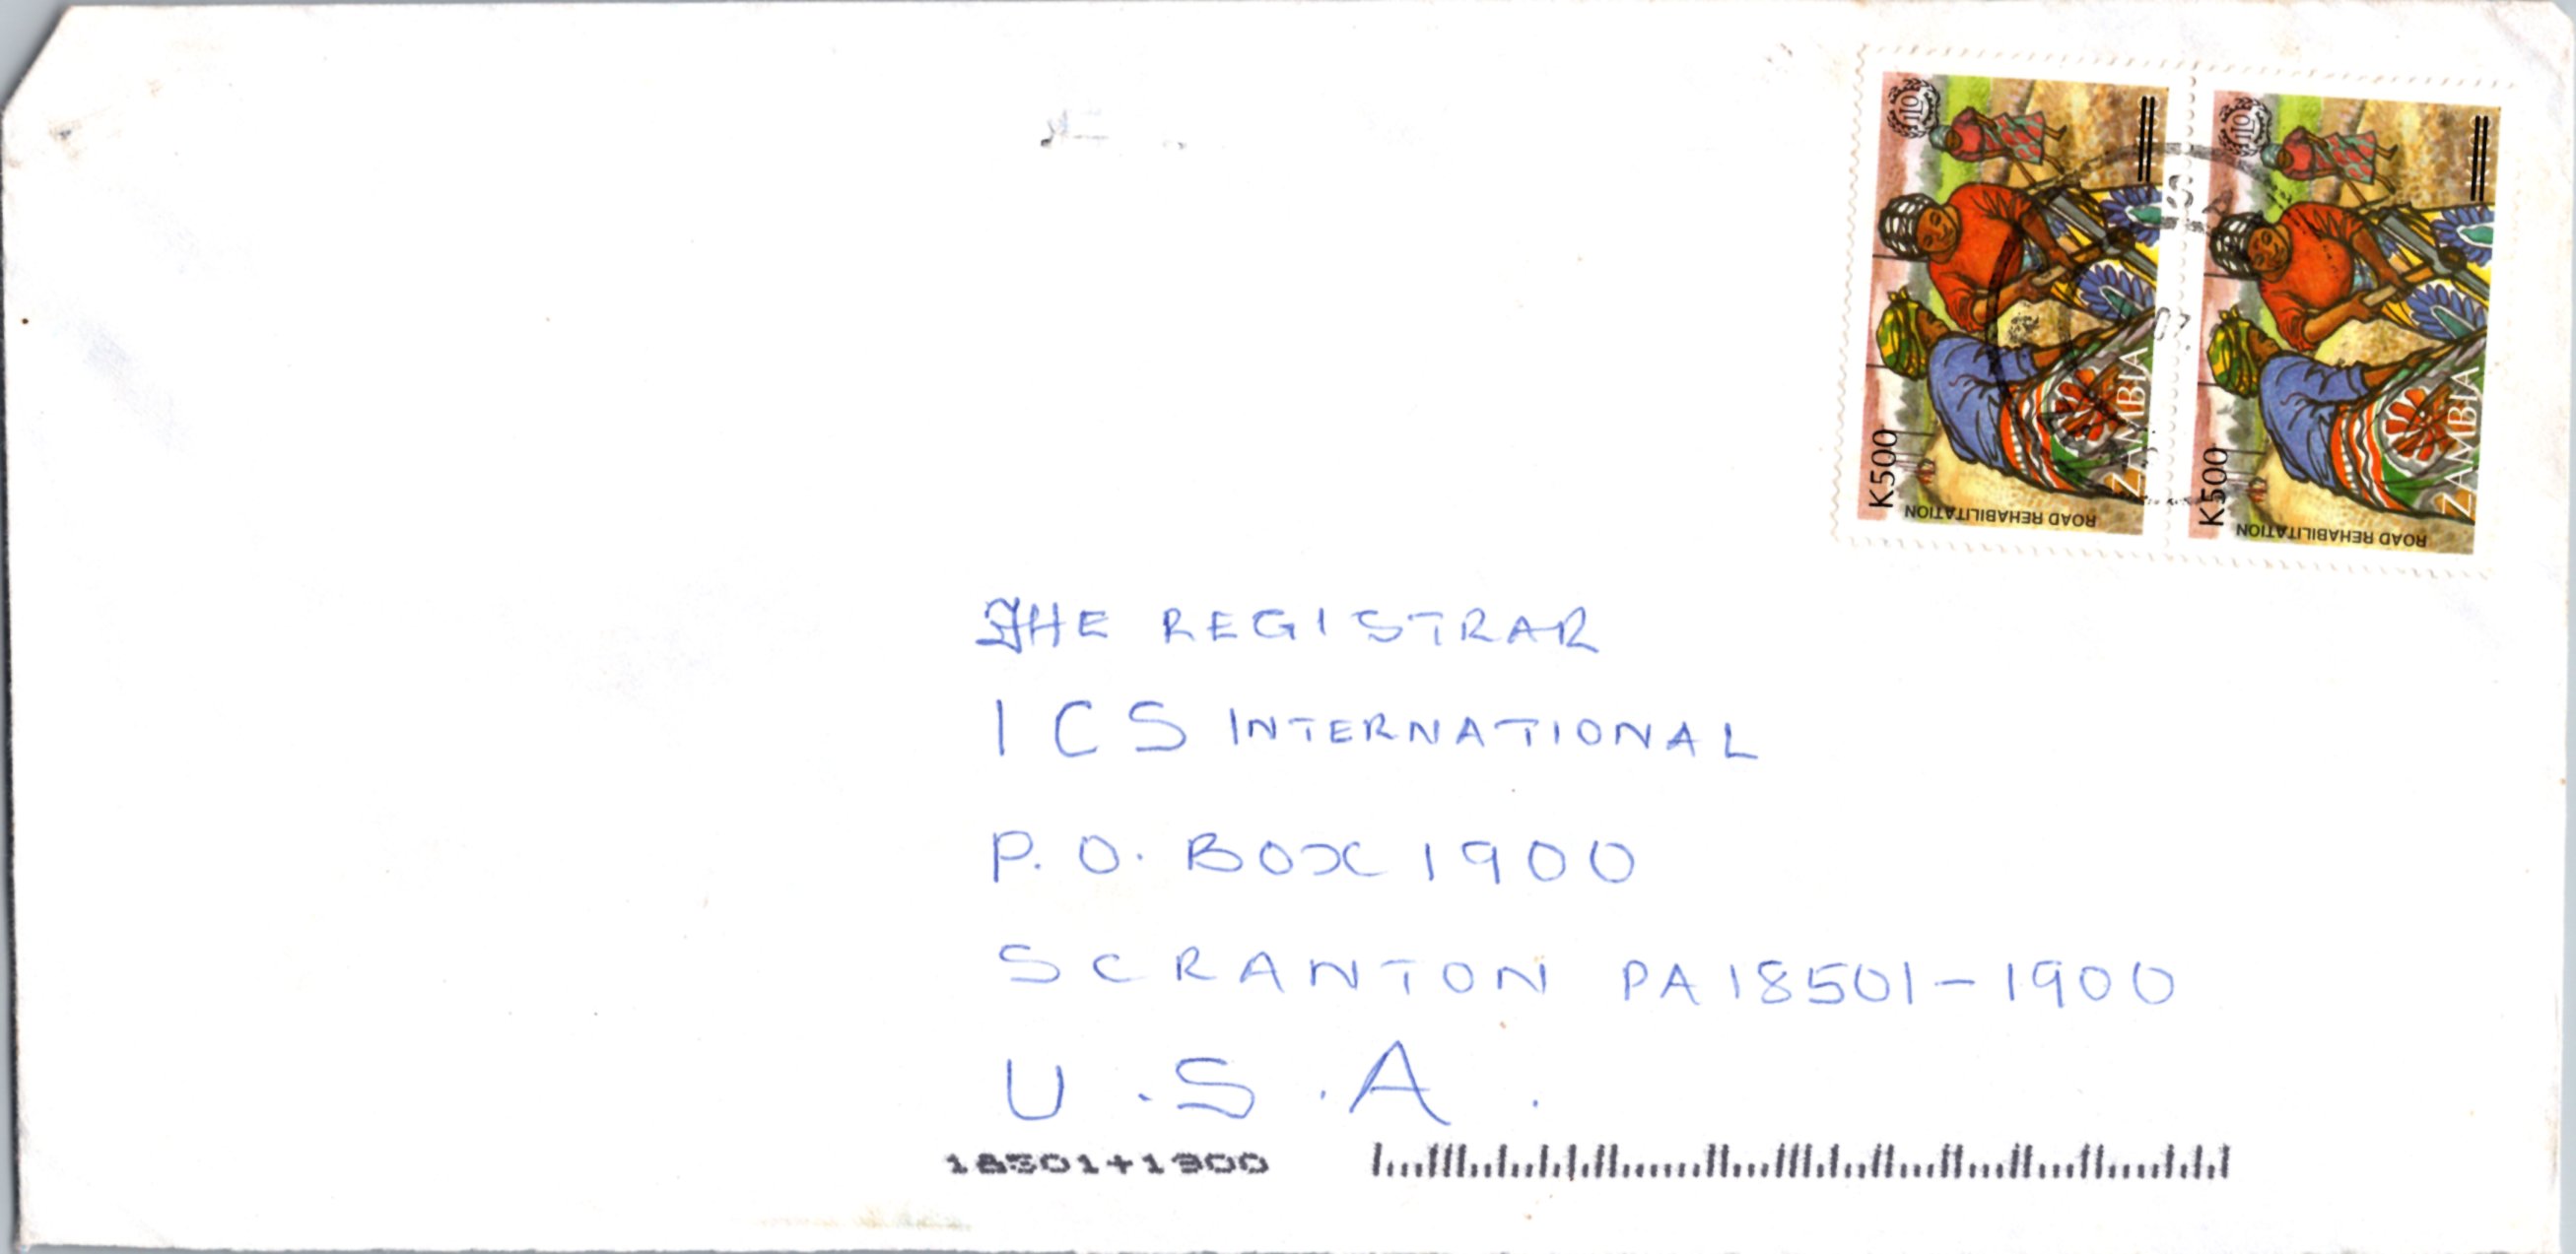 ILO
ILO
K500
ZAMBIA
ROAD REHABILITATION
K500
ZAMBIA
ROAD REHABILITATION
THE REGISTRAR
ICS INTERNATIONAL
P.O. BOX 1900
SCRANTON PA 18501-1900
U.S.A.
18501+1900